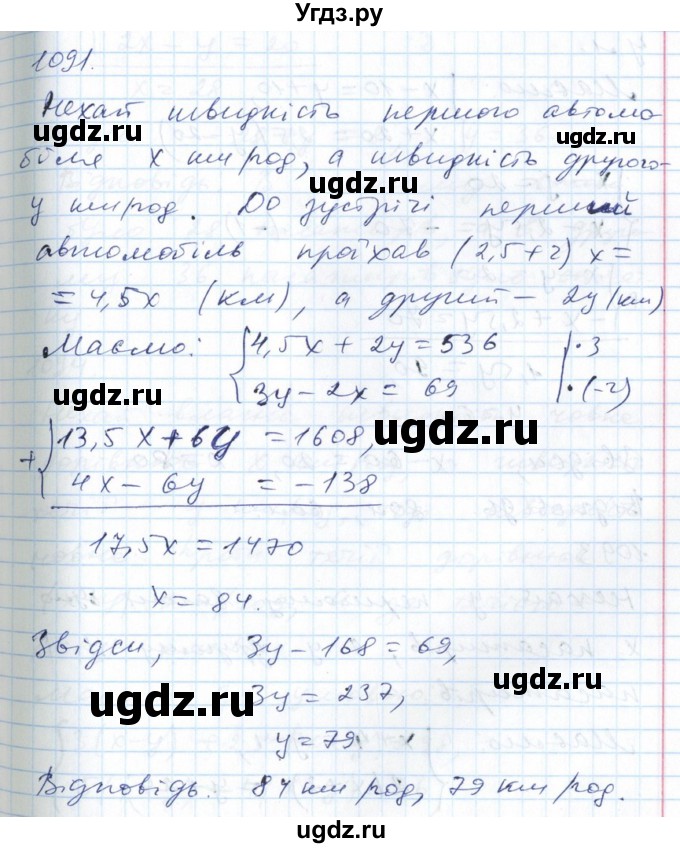 Угдз.ру
1091.
Нехай швидкість першого автомо-
біля x км/год, а швидкість другого-
y км/год. До зустрічі перший
автомобіль проїхав (2,5+2) x =
= 4,5x (км), а другий – 2y (км)
Маємо: { 4,5x + 2y = 536 | · 3
3y – 2x = 69 | · (-2)
+ { 13,5x + 6y = 1608,
4x – 6y = – 138
17,5x = 1470
x = 84.
Звідси, 3y – 168 = 69,
3y = 237,
y = 79.
Відповідь: 84 км/год, 79 км/год.
ugdz.ru
ugdz.ru
ugdz.ru
ugdz.ru
ugdz.ru
ugdz.ru
ugdz.ru
ugdz.ru
ugdz.ru